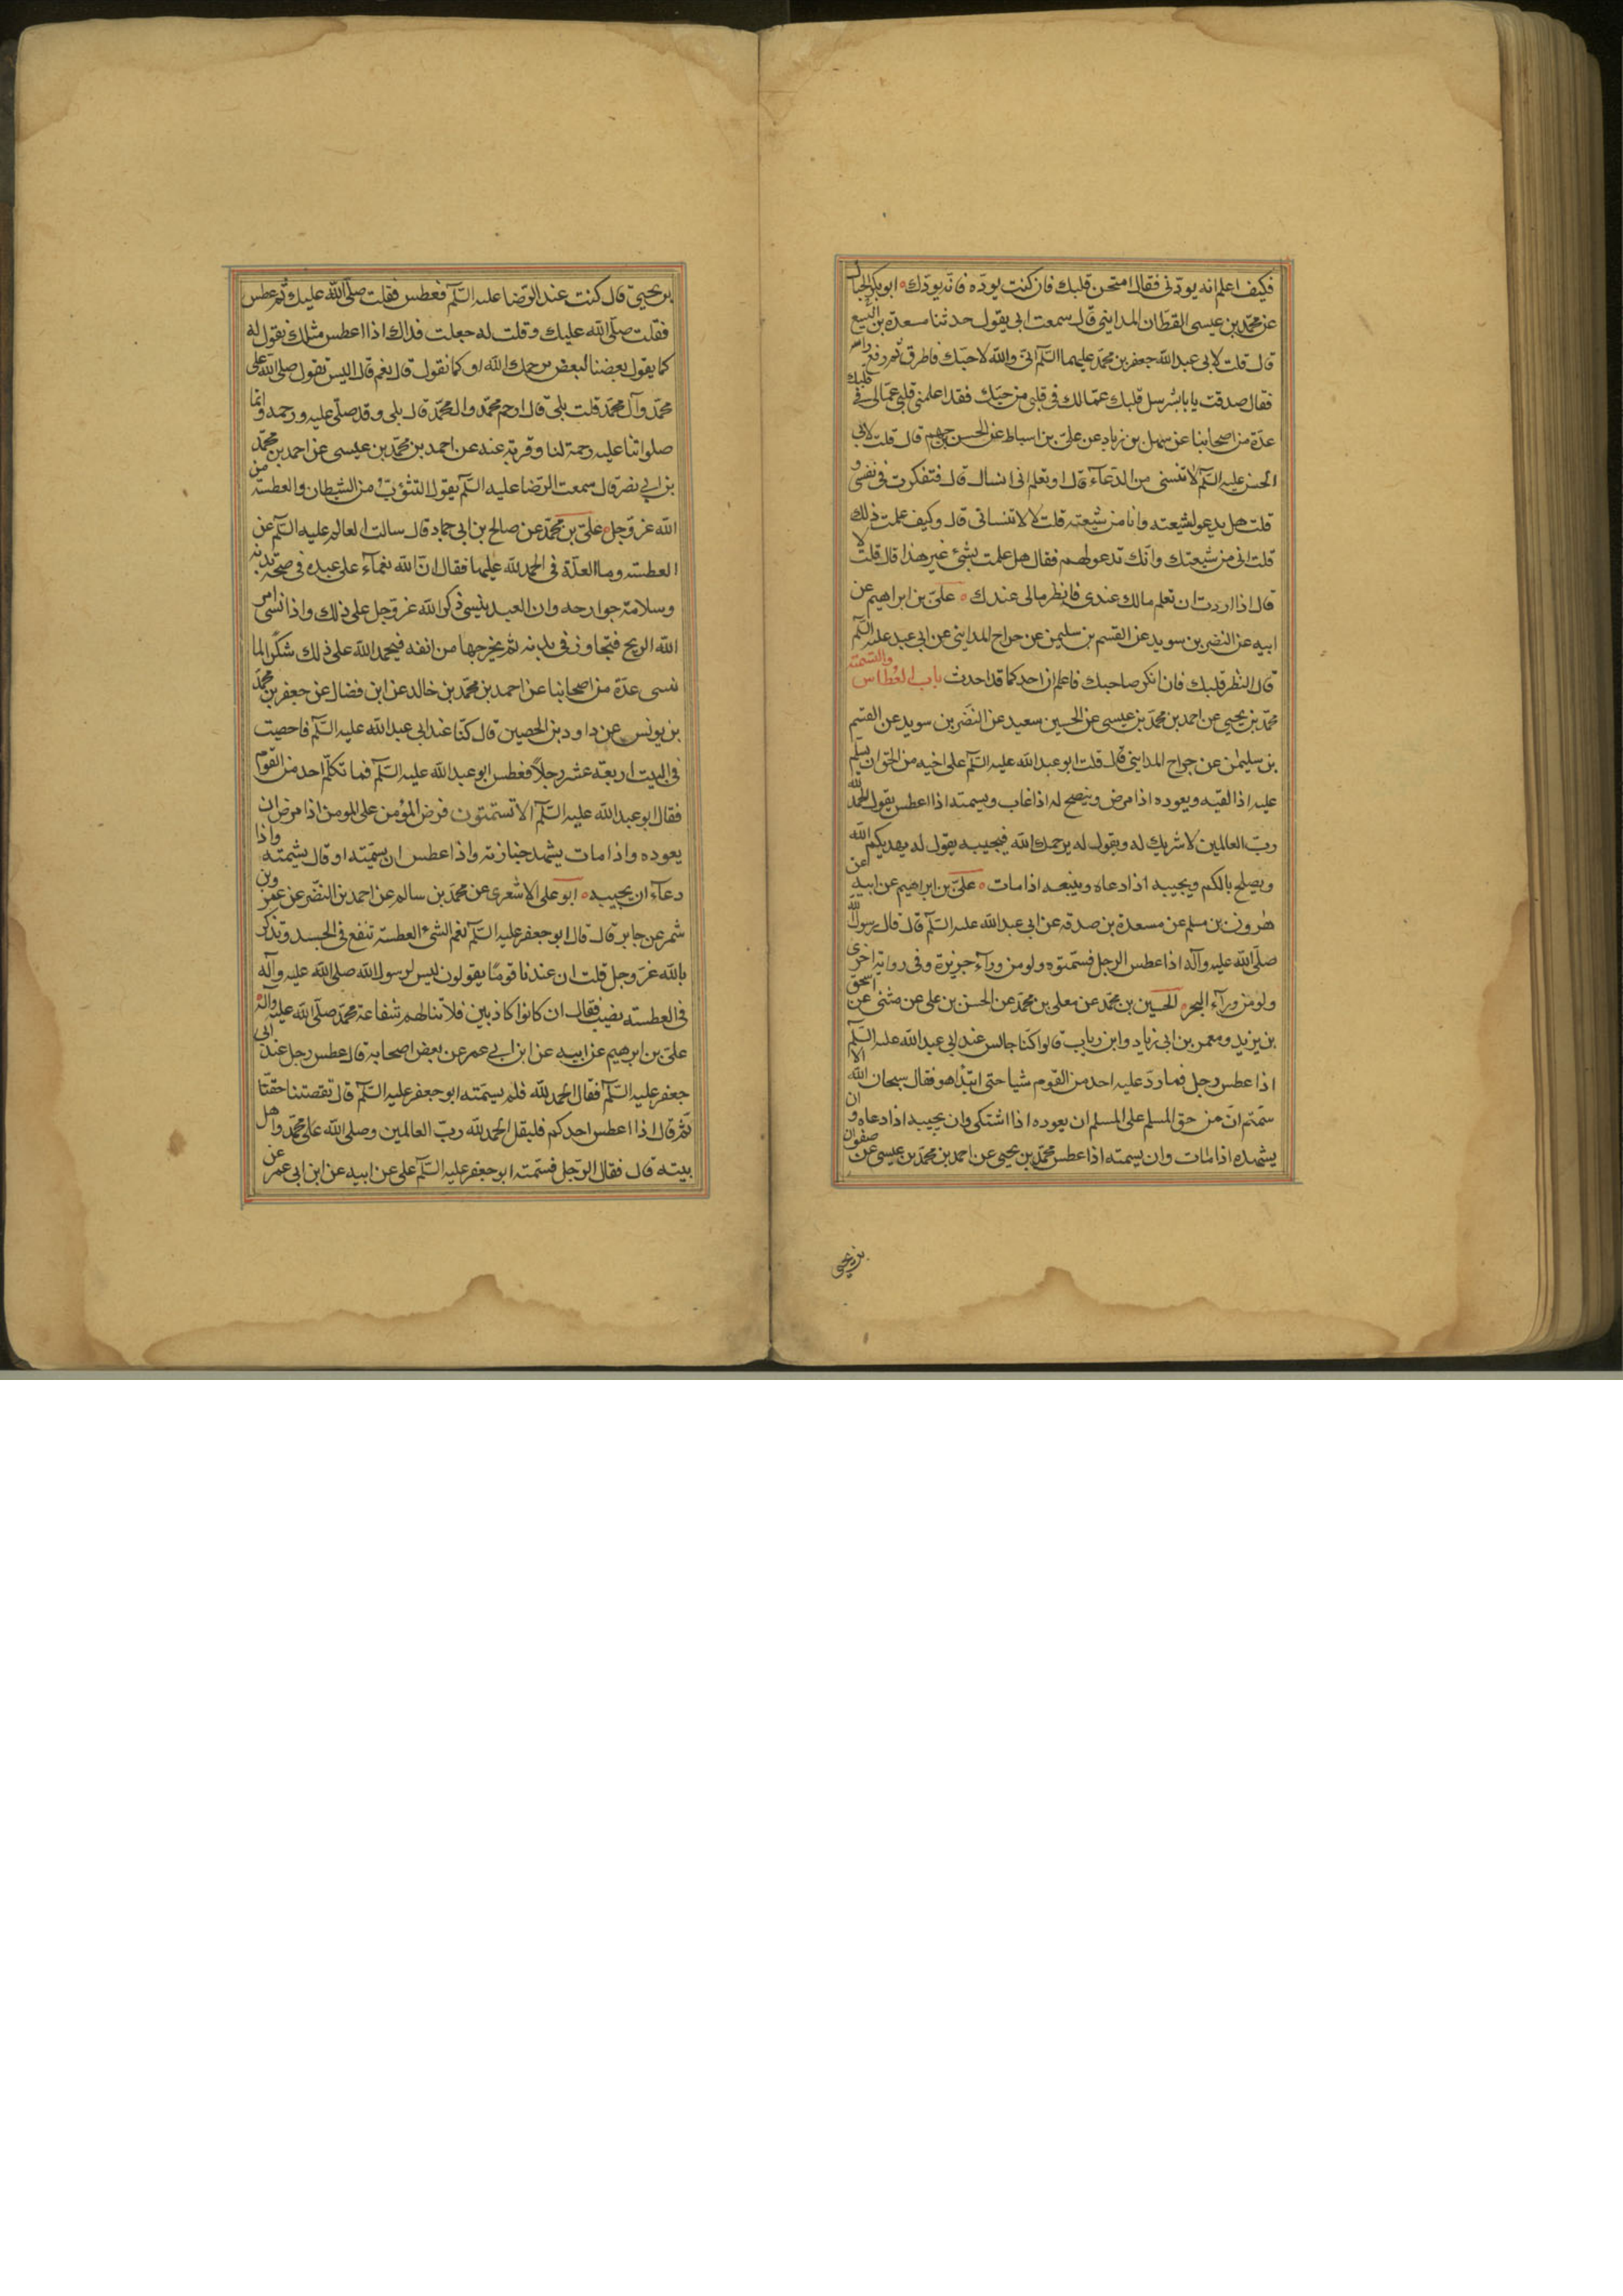 فكيف اعلم انه يودني فقال امتحن قلبك فان كنت تودّه فانه يودّك ابو بكر الحبال
عن محمد بن عيسى القطان المدايني قال سمعت ابي يقول حدثنا مسعدة بن اليسع
قال قلت لابي عبد الله جعفر بن محمد عليهما السلم انى والله لاحبك فاطرق ثم رفع راسه
فقال صدقت يا بابشر سل قلبك عمّا لك في قلبي من حبك فقد اعلمني قلبي عمّا لي في قلبك
عدّة من اصحابنا عن سهل بن زياد عن علي بن اسباط عن الحسن بن جهم قال قلت لابي
الحسن عليه السلم لا تنسني من الدعاء قال او تعلم اني انساك قال فتفكرت في نفسي و
قلت هل يدعو لشيعته وانا من شيعته قلت لا لا تنساني قال وكيف علمت ذلك
قلت انى من شيعتك وانّك تدعو لهم فقال هل علمت بشئ غير هذا قال قلت لا
قال اذا اردت ان تعلم مالك عندى فانظر مالي عندك علىّ بن ابراهيم عن
ابيه عن النضر بن سويد عن القسم بن سليمن عن جراح المدايني عن ابى عبد عليه السلم
قال انظر قلبك فان انكر صاحبك فاعلم ان احدكما قد احدث باب العُطاس والتسمية
محمّد بن يحيي عن احمد بن محمّد بن عيسى عن الحسين سعيد عن النضر بن سويد عن القسم
بن سليمن عن جراح المدايني قال قلت ابو عبد الله عليه السلم على اخيه من الحق ان يسلم
عليه اذا لقيه ويعوده اذا مرض وينصح له اذا غاب ويسمته اذا اعطس يقول الحمد لله
ربّ العالمين لا شريك له ويقول له يرحمك الله فيجيبه يقول له يهديكم الله
ويصلح بالكم ويجيبه اذا دعاه ويتبعه اذا مات علىّ بن ابراهيم عن ابيه عن
هرون بن مسلم عن مسعدة بن صدقة عن ابى عبد الله عليه السلم قال قال رسول الله
صلّى الله عليه وآله اذا عطس الرجل فسمّتوه ولو من ورآء جزيرة وفى رواية اخرى
ولو من ورآء البحر الحسين بن محمّد عن معلى بن محمّد عن الحسن بن على عن مثنى عن اسحق
بن يزيد ومعمر بن ابى زياد وابن رياب قالوا كنّا جالس عند ابى عبد الله عليه السلم
اذا عطس رجل فما ردّ عليه احد من القوم شيا حتى ابتدا هو فقال سبحان الله الا
سمّتم انّ من حق المسلم على المسلم ان يعوده اذا اشتكى وان يجيبه اذا دعاه و ان
يشهده اذا مات وان يسمته اذا عطس محمّد بن يحيى عن احمد بن محمّد بن عيسى عن صفوان
بن يحيى
بن يحيىّ قال كنت عند الرّضا عليه السلم فعطس فقلت صلّى الله عليك ثم عطس
فقلت صلّى الله عليك وقلت له جعلت فداك اذا اعطس مثلك نقول له
كما يقول بعضنا لبعض يرحمك الله او كما نقول قال نعم قال اليس تقول صلى الله على
محمّد وآل محمّد قلت بلى قال ارحم محمّد وال محمّد قال بلى وقد صلّى عليه ورحمه وانّما
صلواتنا عليه رحمة لنا وقربة عنه عن احمد بن محمّد بن عيسى عن احمد بن محمّد
بن ابى نصر قال سمعت الرّضا عليه السلم يقول التثؤب من الشيطان والعطسة من
الله عزّ وجل علىّ بن محمّد عن صالح بن ابى حماد قال سالت العالم عليه السلم عن
العطسة وما العلّة في الحمد لله عليها فقال انّ الله نعمآء على عبده في صحة بدنه
وسلامة جوارحه وان العبد ينسى ذكر الله عزّ وجل على ذلك واذا نسى امر
الله الريح فتجاوز في بدنه ثم يخرجها من انفه فيحمد الله على ذلك شكرًا لما
نسى عدّة من اصحابنا عن احمد بن محمّد بن خالد عن ابن فضال عن جعفر بن محمّد
بن يونس عن داود بن الحصين قال كنّا عند ابى عبد الله عليه السلم فاحصيت
في البيت اربعة عشر رجلاً فعطس ابو عبد الله عليه السلم فما تكلّم احد من القوم
فقال ابو عبد الله عليه السلم الا تسمتون فرض المؤمن على المومن اذا مرض ان
يعوده واذا مات يشهد جنازته واذا عطس ان يسمّته او قال يشمته واذا
دعآء ان يجيبه ابو على الاشعرى عن محمّد بن سالم عن احمد بن النضر عن عمرو بن
شمر عن جابر قال قال ابو جعفر عليه السلم نعم الشئ العطسة تنفع في الجسد وتذكر
بالله عزّ وجل قلت ان عندنا قومًا يقولون ليس لرسول الله صلى الله عليه وآله
في العطسة نصيب فقال ان كانوا كاذبين فلا نالهم شفاعة محمّد صلّى الله عليه وآله
علىّ بن ابرهيم عن ابيه عن ابن ابي عمر عن بعض اصحابه قال عطس رجل عند ابى
جعفر عليه السلم فقال الحمد لله فلم يسمّته ابو جعفر عليه السلم قال نقصتنا حقّنا
ثمّ قال اذا اعطس احدكم فليقل الحمد لله ربّ العالمين وصلى الله على محمّد واهل
بيته قال فقال الرّجل فسمّته ابو جعفر عليه السلم على عن ابيه عن ابن ابى عمر عن